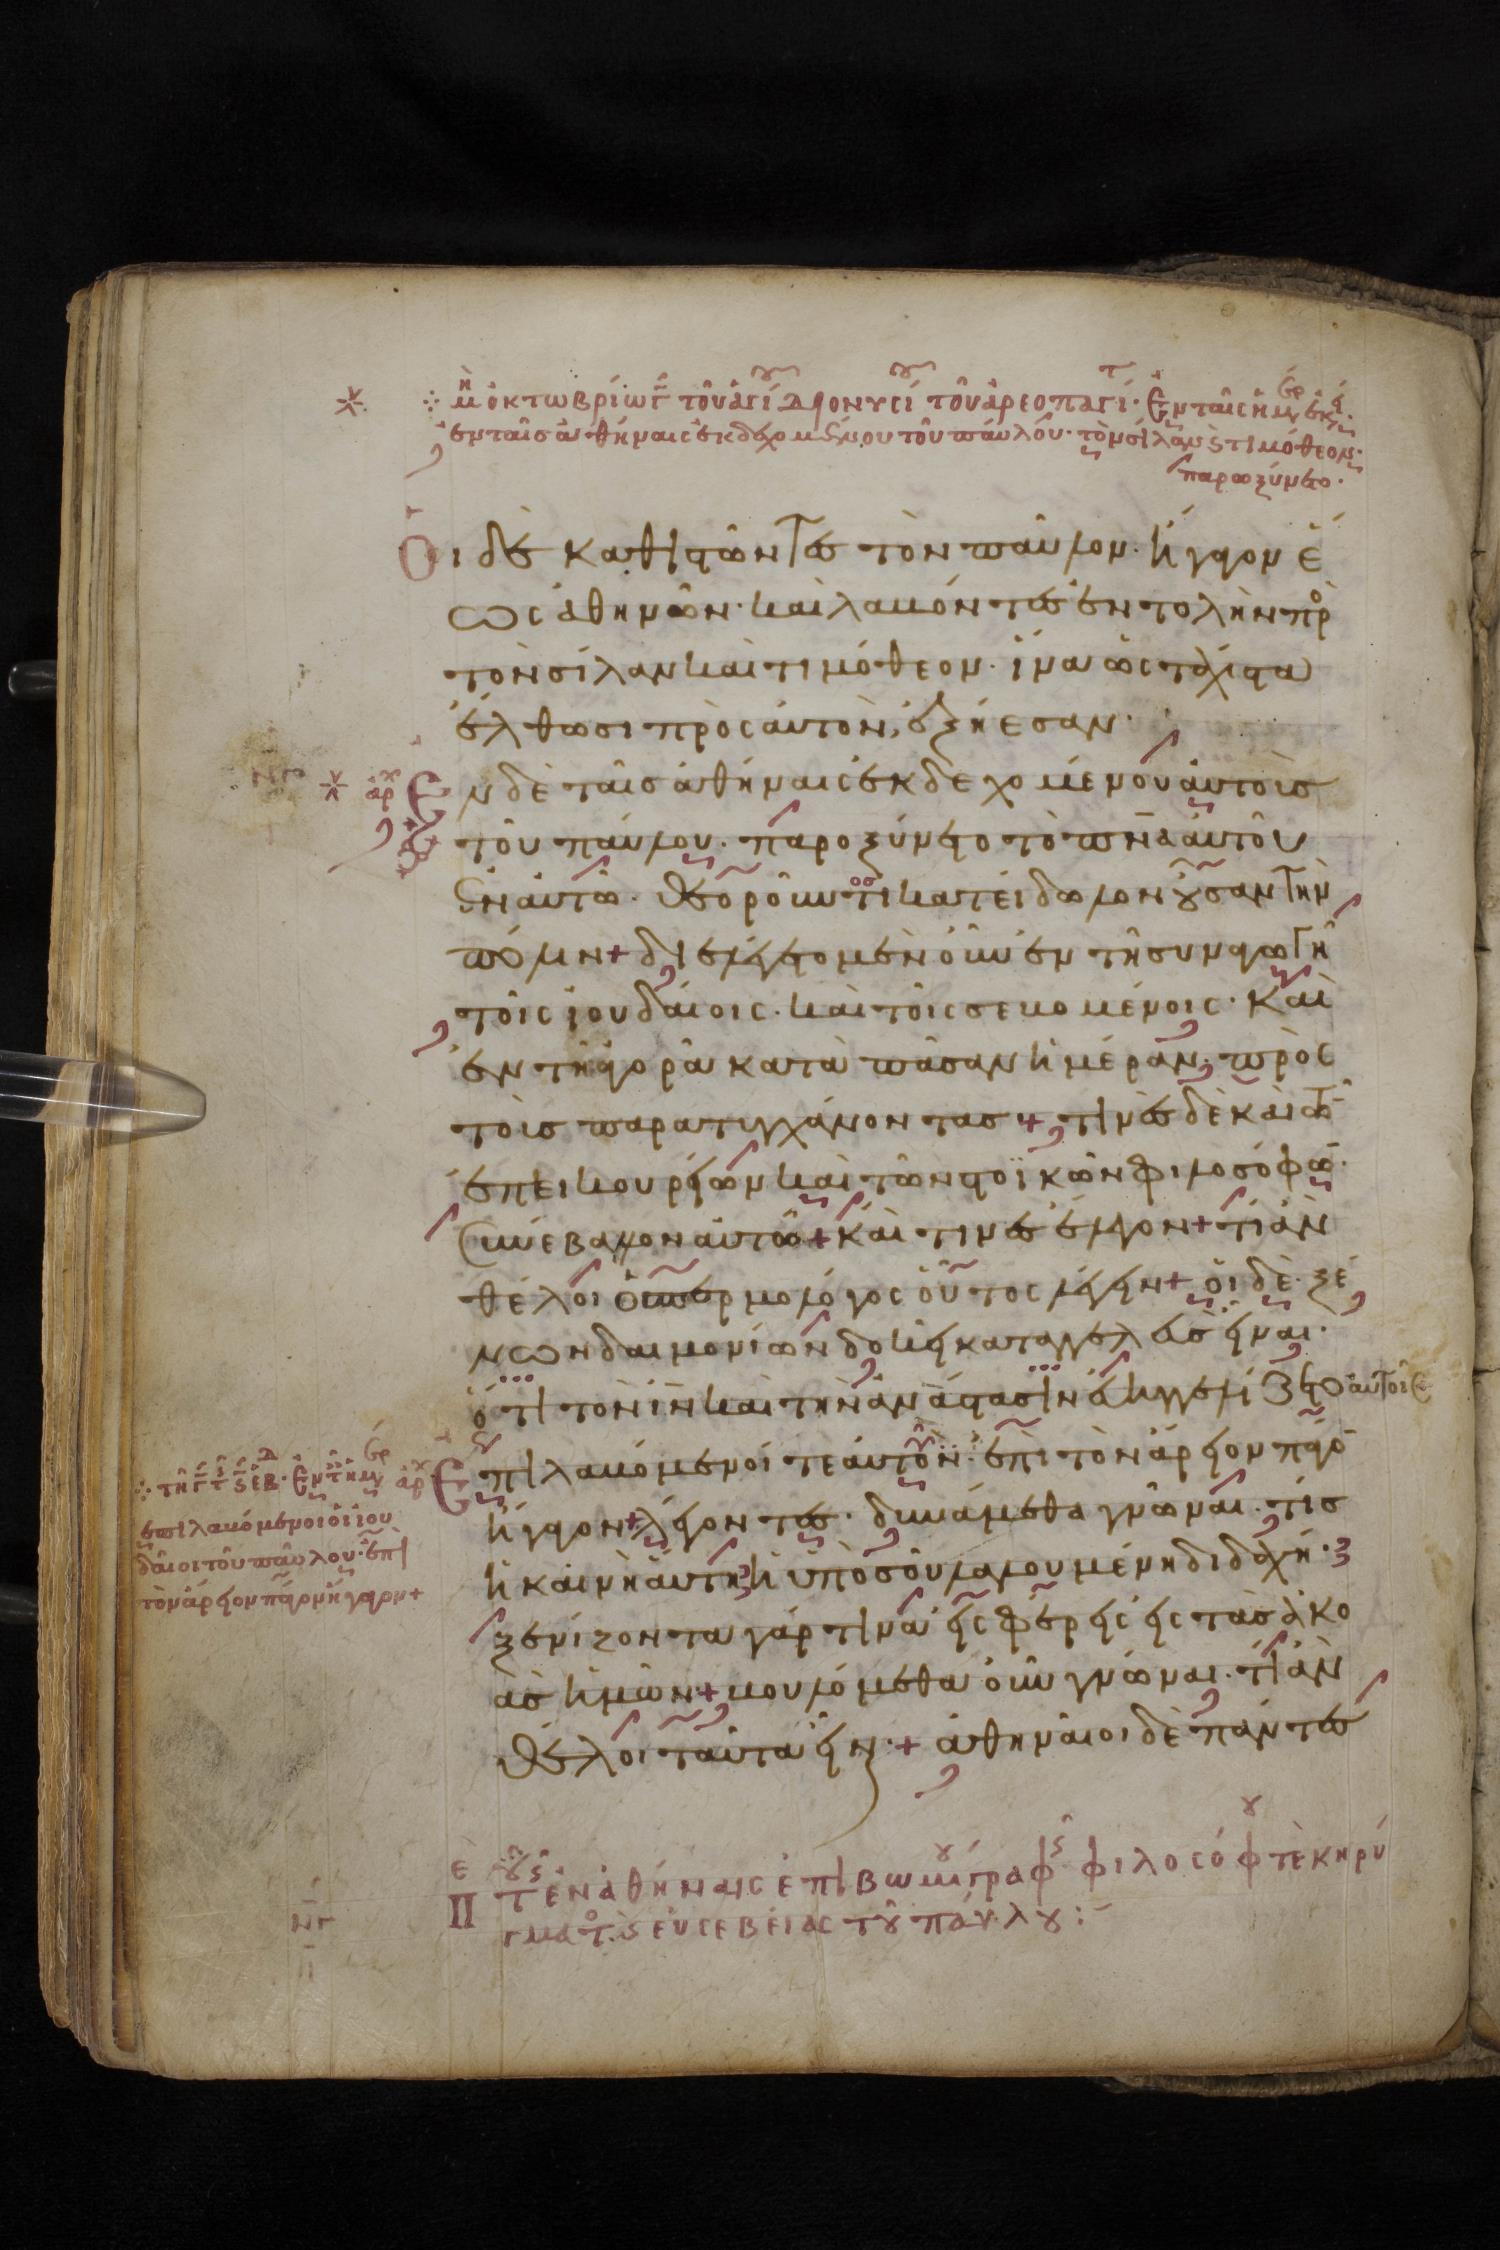 μη οκτωβρίω γ τοῦ ἁγίου Διονυσίου τοῦ ἀρεοπαγίτ· Ἐν ταῖς ἡμέραις ἐκείναις
ἐν ταῖς ἀθήναις ἐκδεχομένου τοῦ παύλου· τὸν σίλαν ϗ τιμόθεον·
παρωξύνετο·
Οι δὲ καθιστῶντες τὸν παῦλον· ἤγαγον ἕ
ως ἀθηνῶν· καὶ λαβόντες ἐντολὴν πρὸς
τὸν σίλαν καὶ τιμόθεον· ἵνα ὡς τάχιστα
ἔλθωσι πρὸς αὐτὸν, ἐξήεσαν·
ἀρχ Εν δὲ ταῖς ἀθήναις ἐκδεχομένου αὐτοὺς
τοῦ παύλου· παροξύνετο τὸ πνα αὐτοῦ
ἐν αὐτῶ· θεωροῦντι κατείδωλον οὖσαν τὴν
πόλιν + διελέγετο μὲν οὖν ἐν τῆ συναγωγῆ
τοῖς ἰουδαίοις· καὶ τοῖς σεβομένοις· καὶ
ἐν τῆ ἀγορᾶ κατὰ πᾶσαν ἡμέραν· πρὸς
τοὺς παρατυγχάνοντας + τινὲς δὲ καὶ τῶν
ἐπικουρείων καὶ τῶν στοϊκῶν φιλοσόφων·
συνέβαλλον αὐτῶ + καὶ τινες ἔλεγον + τί ἂν
θέλοι ὁ σπερμολόγος οὗτος λέγειν + οἱ δὲ· ξέ
νων δαιμονίων δοκεῖ καταγγελεὺς εἶναι·
ὅτι τὸν ιν καὶ τὴν ἀνάστασιν εὐηγγελίζετο αὐτοῖς
Επιλαβόμενοί τε αὐτοῦ· ἐπὶ τὸν ἄρειον πάγον
ἤγαγον + λέγοντες· δυνάμεθα γνῶναι· τίς
ἡ καινὴ αὕτη ἡ ὑπὸ σοῦ λαλουμένη διδαχή·
ξενίζοντα γάρ τινα εἰσφέρεις εἰς τὰς ἀκο
ὰς ἡμῶν + βουλόμεθα οὖν γνῶναι· τί ἂν
θέλοι ταῦτα εἶναι + ἀθηναῖοι δὲ πάντες
ἐπιλαβόμενοι οἱ ἰου
δαῖοι τοῦ παύλου· ἐπὶ
τὸν ἄρειον πάγον ἤγαγον +
Περὶ τοῦ ἐν ἀθήναις ἐπιβωμίου γραφῆς φιλοσόφου τὲ κηρύ
γματος ϗ εὐσεβείας τοῦ παύλου :
νγ